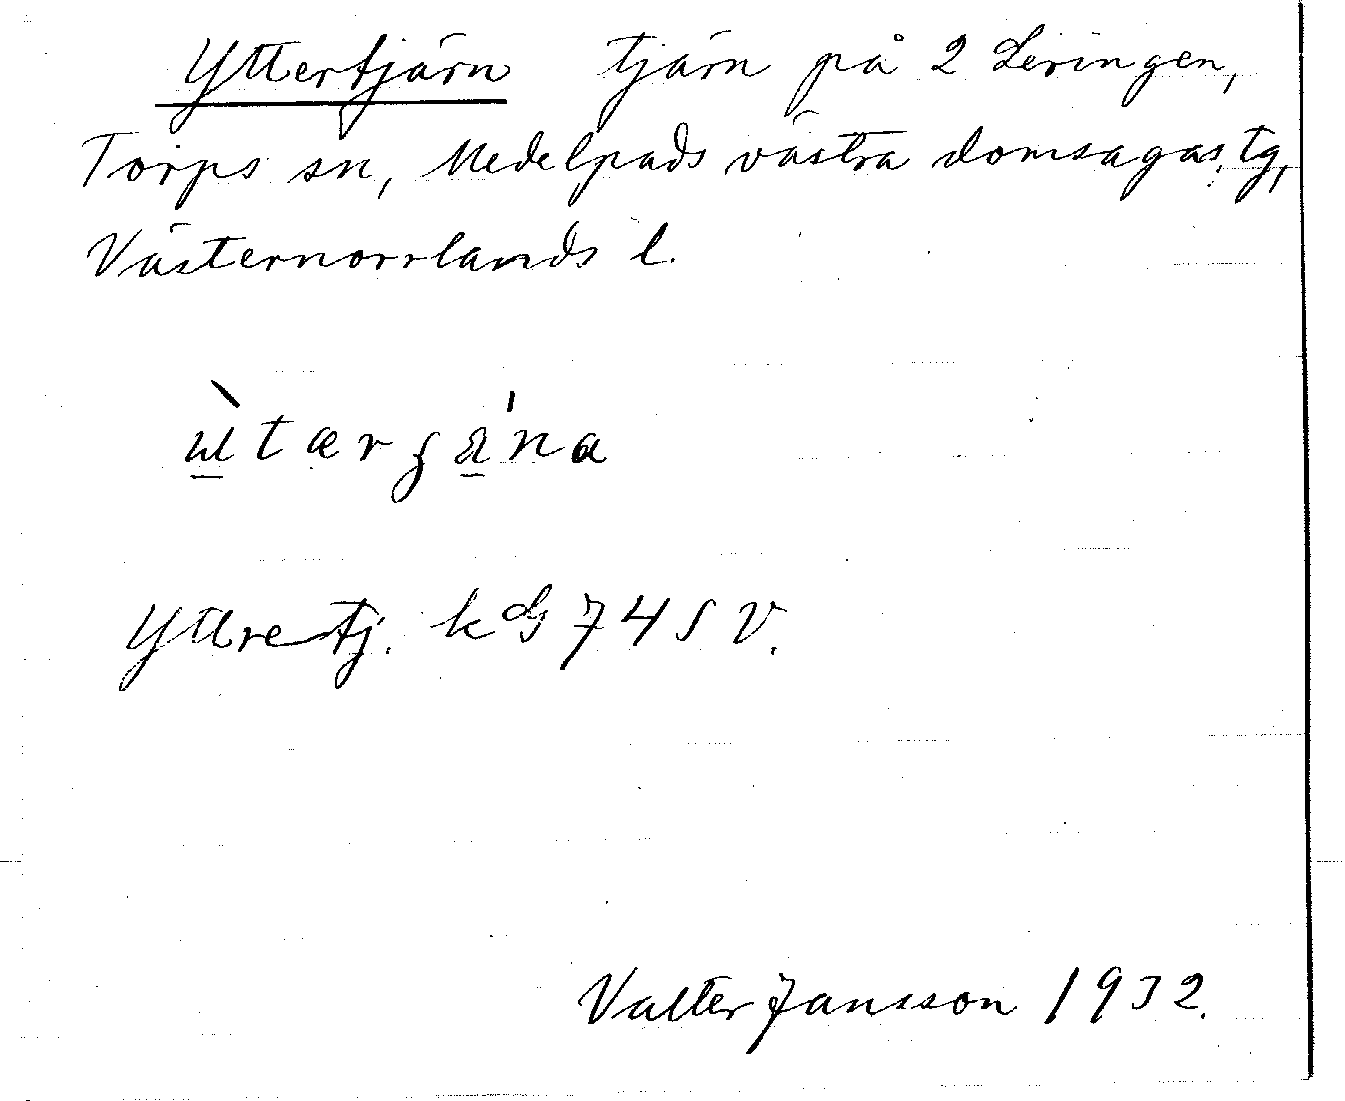 Yttertjärn tjärn på 2 Leringen,
Torps sn, Medelpads västra domsagas tg,
Västernorrlands l.
Yttre tj. k 74 S V.
Valter Jansson 1932.